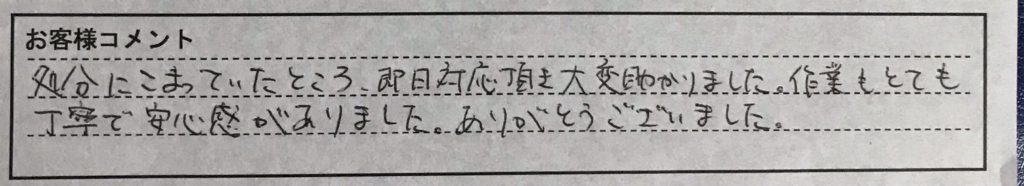 お客様コメント
処分にこまっていたところ、即日対応頂き大変助かりました。作業もとても
丁寧で安心感がありました。ありがとうございました。